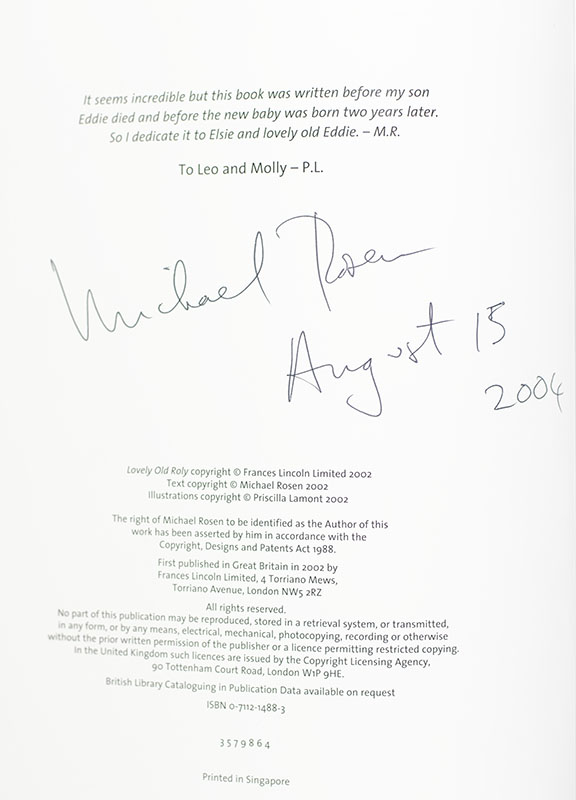 It seems incredible but this book was written before my son
Eddie died and before the new baby was born two years later.
So I dedicate it to Elsie and lovely old Eddie. – M.R.
To Leo and Molly – P.L.
Michael Rosen
August 15
2004
Lovely Old Roly copyright © Frances Lincoln Limited 2002
Text copyright © Michael Rosen 2002
Illustrations copyright © Priscilla Lamont 2002
The right of Michael Rosen to be identified as the Author of this
work has been asserted by him in accordance with the
Copyright, Designs and Patents Act 1988.
First published in Great Britain in 2002 by
Frances Lincoln Limited, 4 Torriano Mews,
Torriano Avenue, London NW5 2RZ
All rights reserved.
No part of this publication may be reproduced, stored in a retrieval system, or transmitted,
in any form, or by any means, electrical, mechanical, photocopying, recording or otherwise
without the prior written permission of the publisher or a licence permitting restricted copying.
In the United Kingdom such licences are issued by the Copyright Licensing Agency,
90 Tottenham Court Road, London W1P 9HE.
British Library Cataloguing in Publication Data available on request
ISBN 0-7112-1488-3
3579864
Printed in Singapore